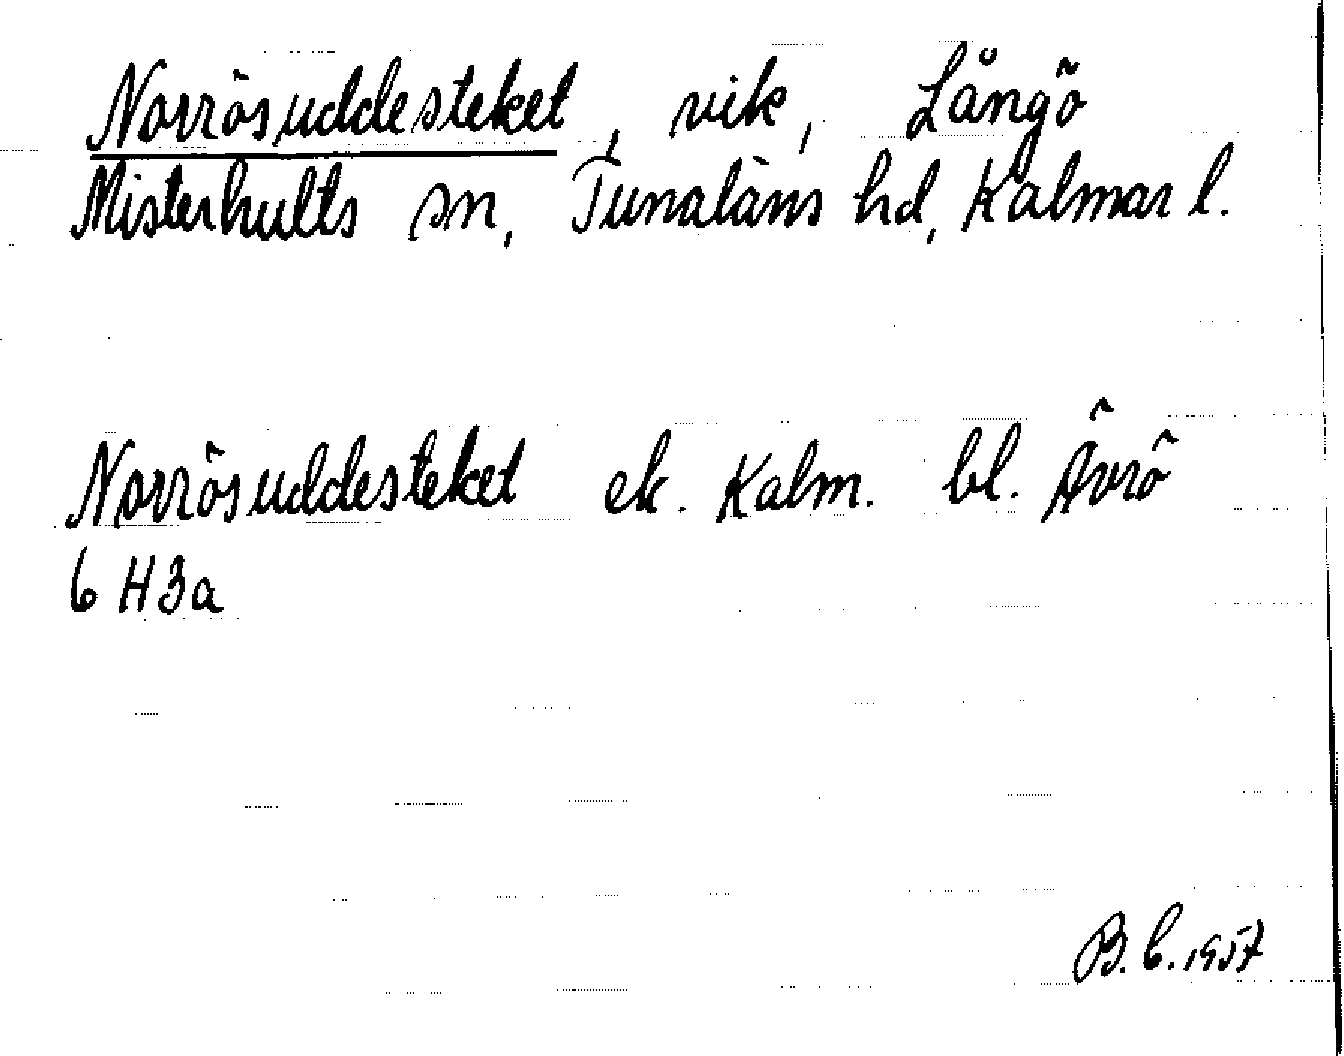 Norrösuddesteket, vik, Långö
Misterhults sn, Tunaläns hd, Kalmar l.
Norrösuddesteket ek. Kalm. bl. Ävrö
6 H3a
B.C. 1957